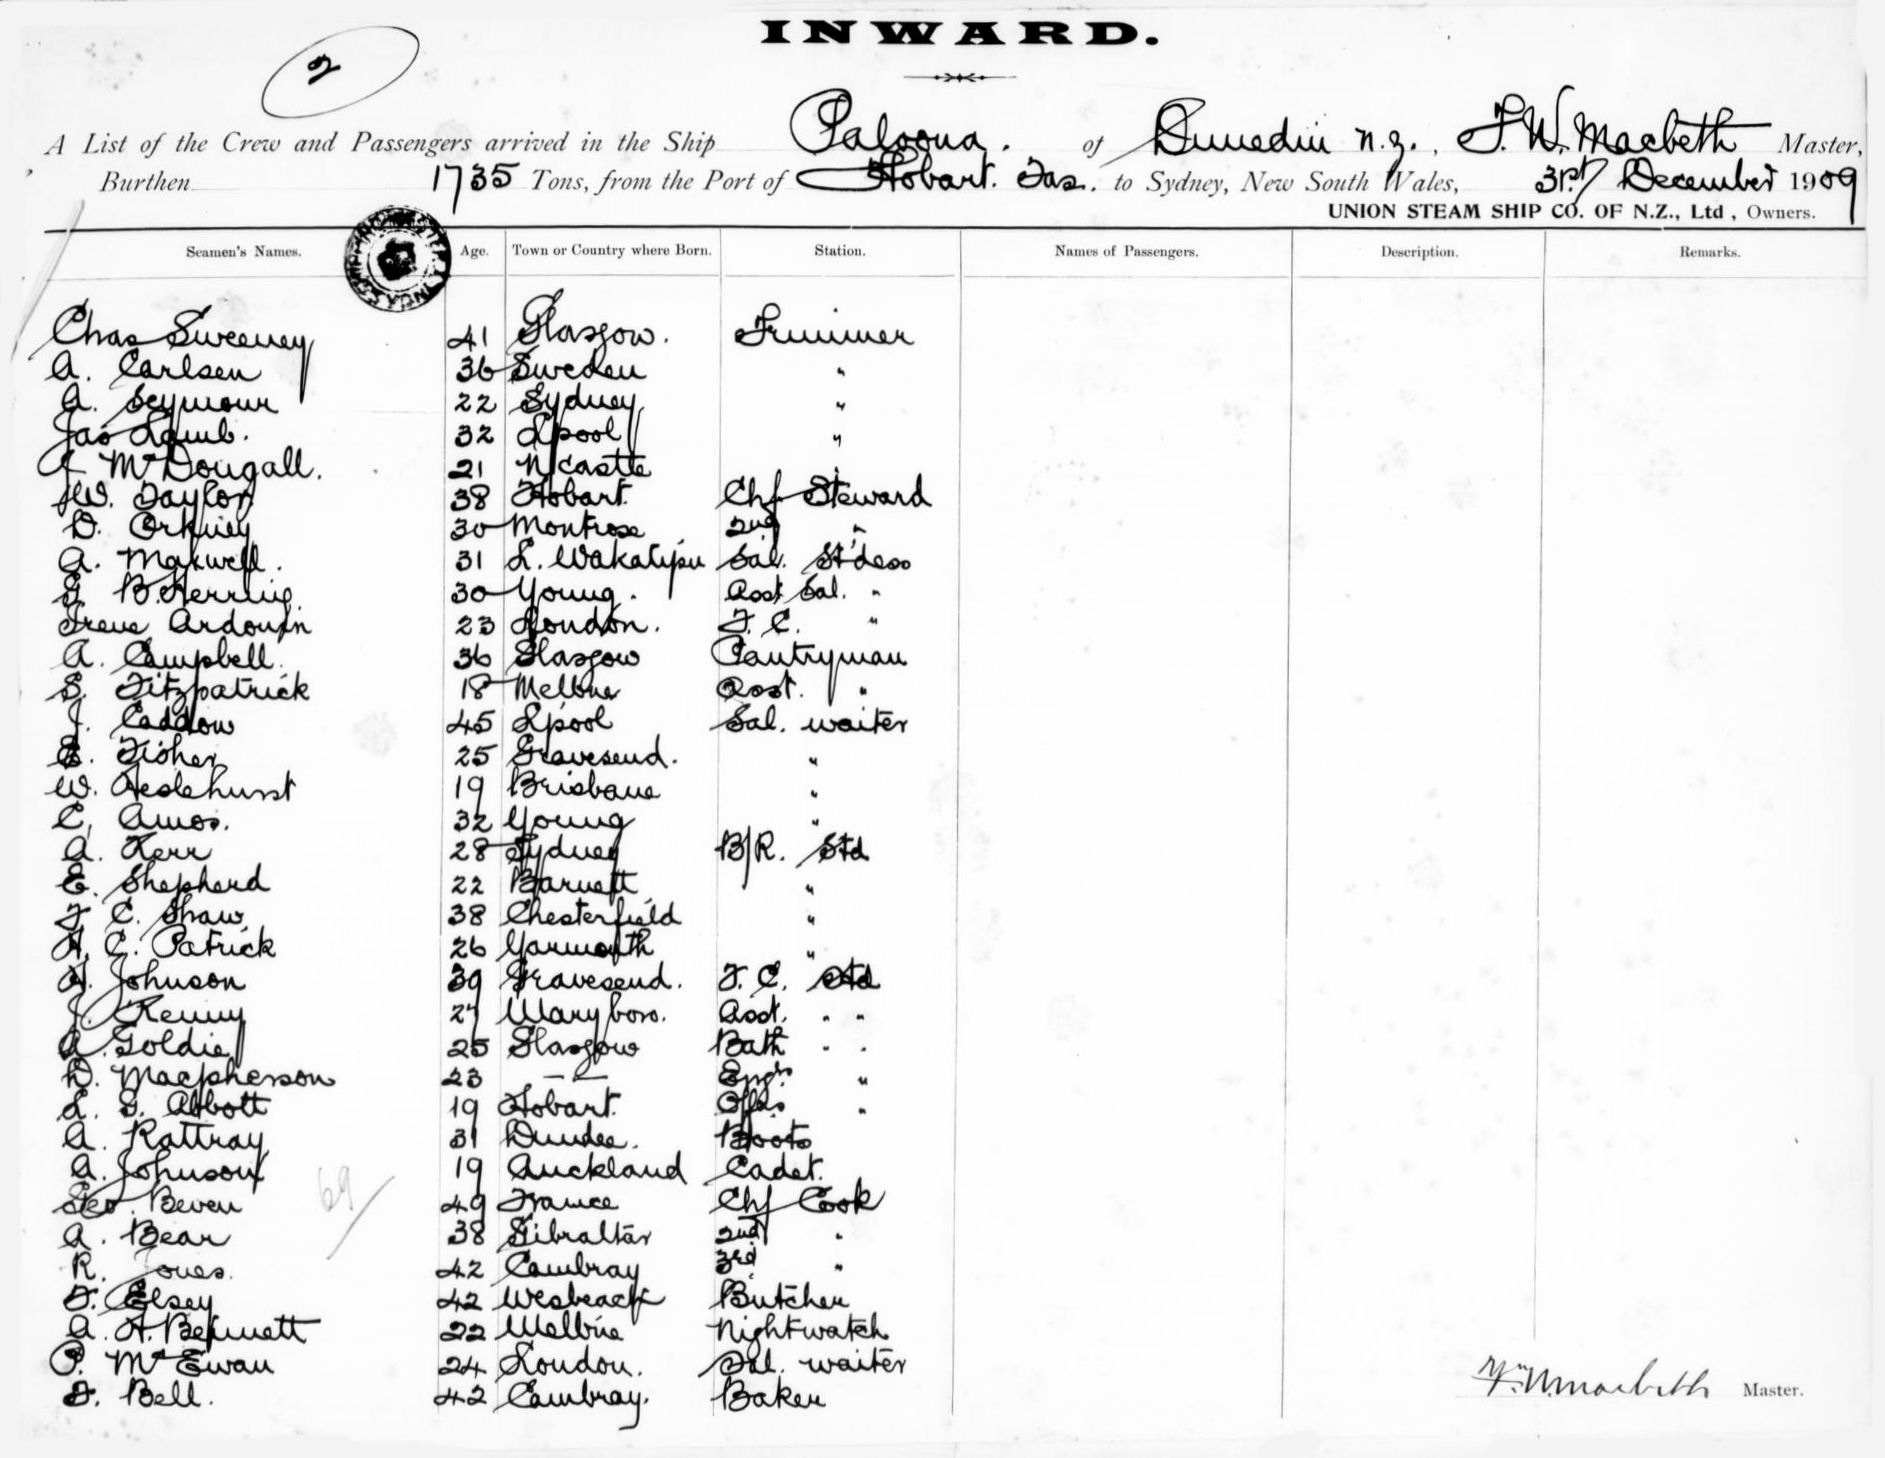 2
INWARD.
A List of the Crew and Passengers arrived in the Ship Paloona. of Dunedin N.Z., F. W. Macbeth Master,
Burthen 1735 Tons, from the Port of Hobart. Tas. to Sydney, New South Wales, 31st December 1909
UNION STEAM SHIP CO. OF N.Z., Ltd, Owners.
Seamen's Names. Age. Town or Country where Born. Station. Names of Passengers. Description. Remarks.
Chas Sweeney 41 Glasgow. Trimmer
A. Carlsen 36 Sweden "
A. Seymour 22 Sydney "
Jas Lamb. 32 L'pool "
McDougall. 21 N'castle
W. Taylor 38 Hobart. Chf Steward
D. Orkney 30 Montrose 2nd "
A. Maxwell. 31 L. Wakatipu Sal. St'dess
G B. Herring. 30 Young. Asst Sal. "
Irene Ardouin 23 London. F. C. "
A. Campbell. 36 Glasgow Pantryman
S. Fitzpatrick 18 Melbne Asst. "
J. Caddow 45 L'pool Sal. waiter
E. Fisher 25 Gravesend. "
W. Heslehurst 19 Brisbane "
C. Amos. 32 Young "
A. Kerr 28 Sydney B/R. Std
E. Shepherd 22 Barnett "
F C. Shaw 38 Chesterfield "
H. C. Patrick 26 Yarmouth "
H. Johnson 39 Gravesend. F. C. Std
J. Kenny 27 Maryboro. Asst. " "
A. Goldie 25 Glasgow Bath " "
D. Macpherson 23 — " — Engrs "
L. G. Abbott 19 Hobart. Offrs "
A. Rattray 31 Dundee. Boots
A. Johnson 19 Auckland Cadet.
Geo. Beven 49 France Chf Cook
A. Bear 38 Gibraltar 2nd "
R. Jones. 42 Cambray 3rd "
F. Elsey 42 Wesbeach Butcher
A. H. Bennett 22 Melbne Nightwatch
P. McEwan 24 London. Sal. waiter
F. Bell. 42 Cambray. Baker
69
F. W. Macbeth Master.